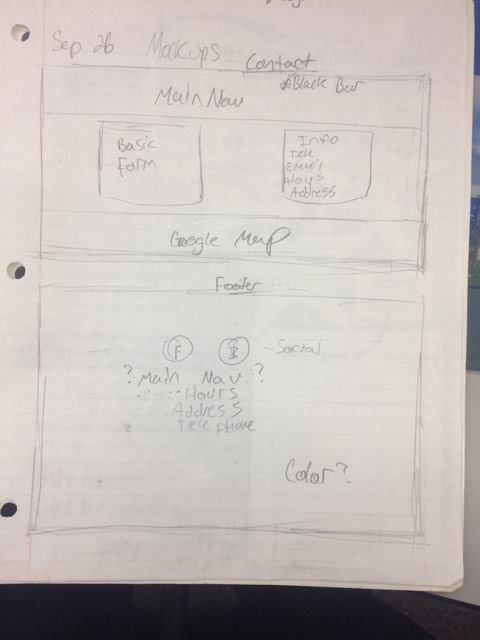 Sep 26 Mockups
Contact
*Black Bar
Main Nav
Basic
Form
Info
Tele
Email
Address
Google Map
Footer
F I - Social
? Main Nav ?
Hours
Address
Telephone
Color?